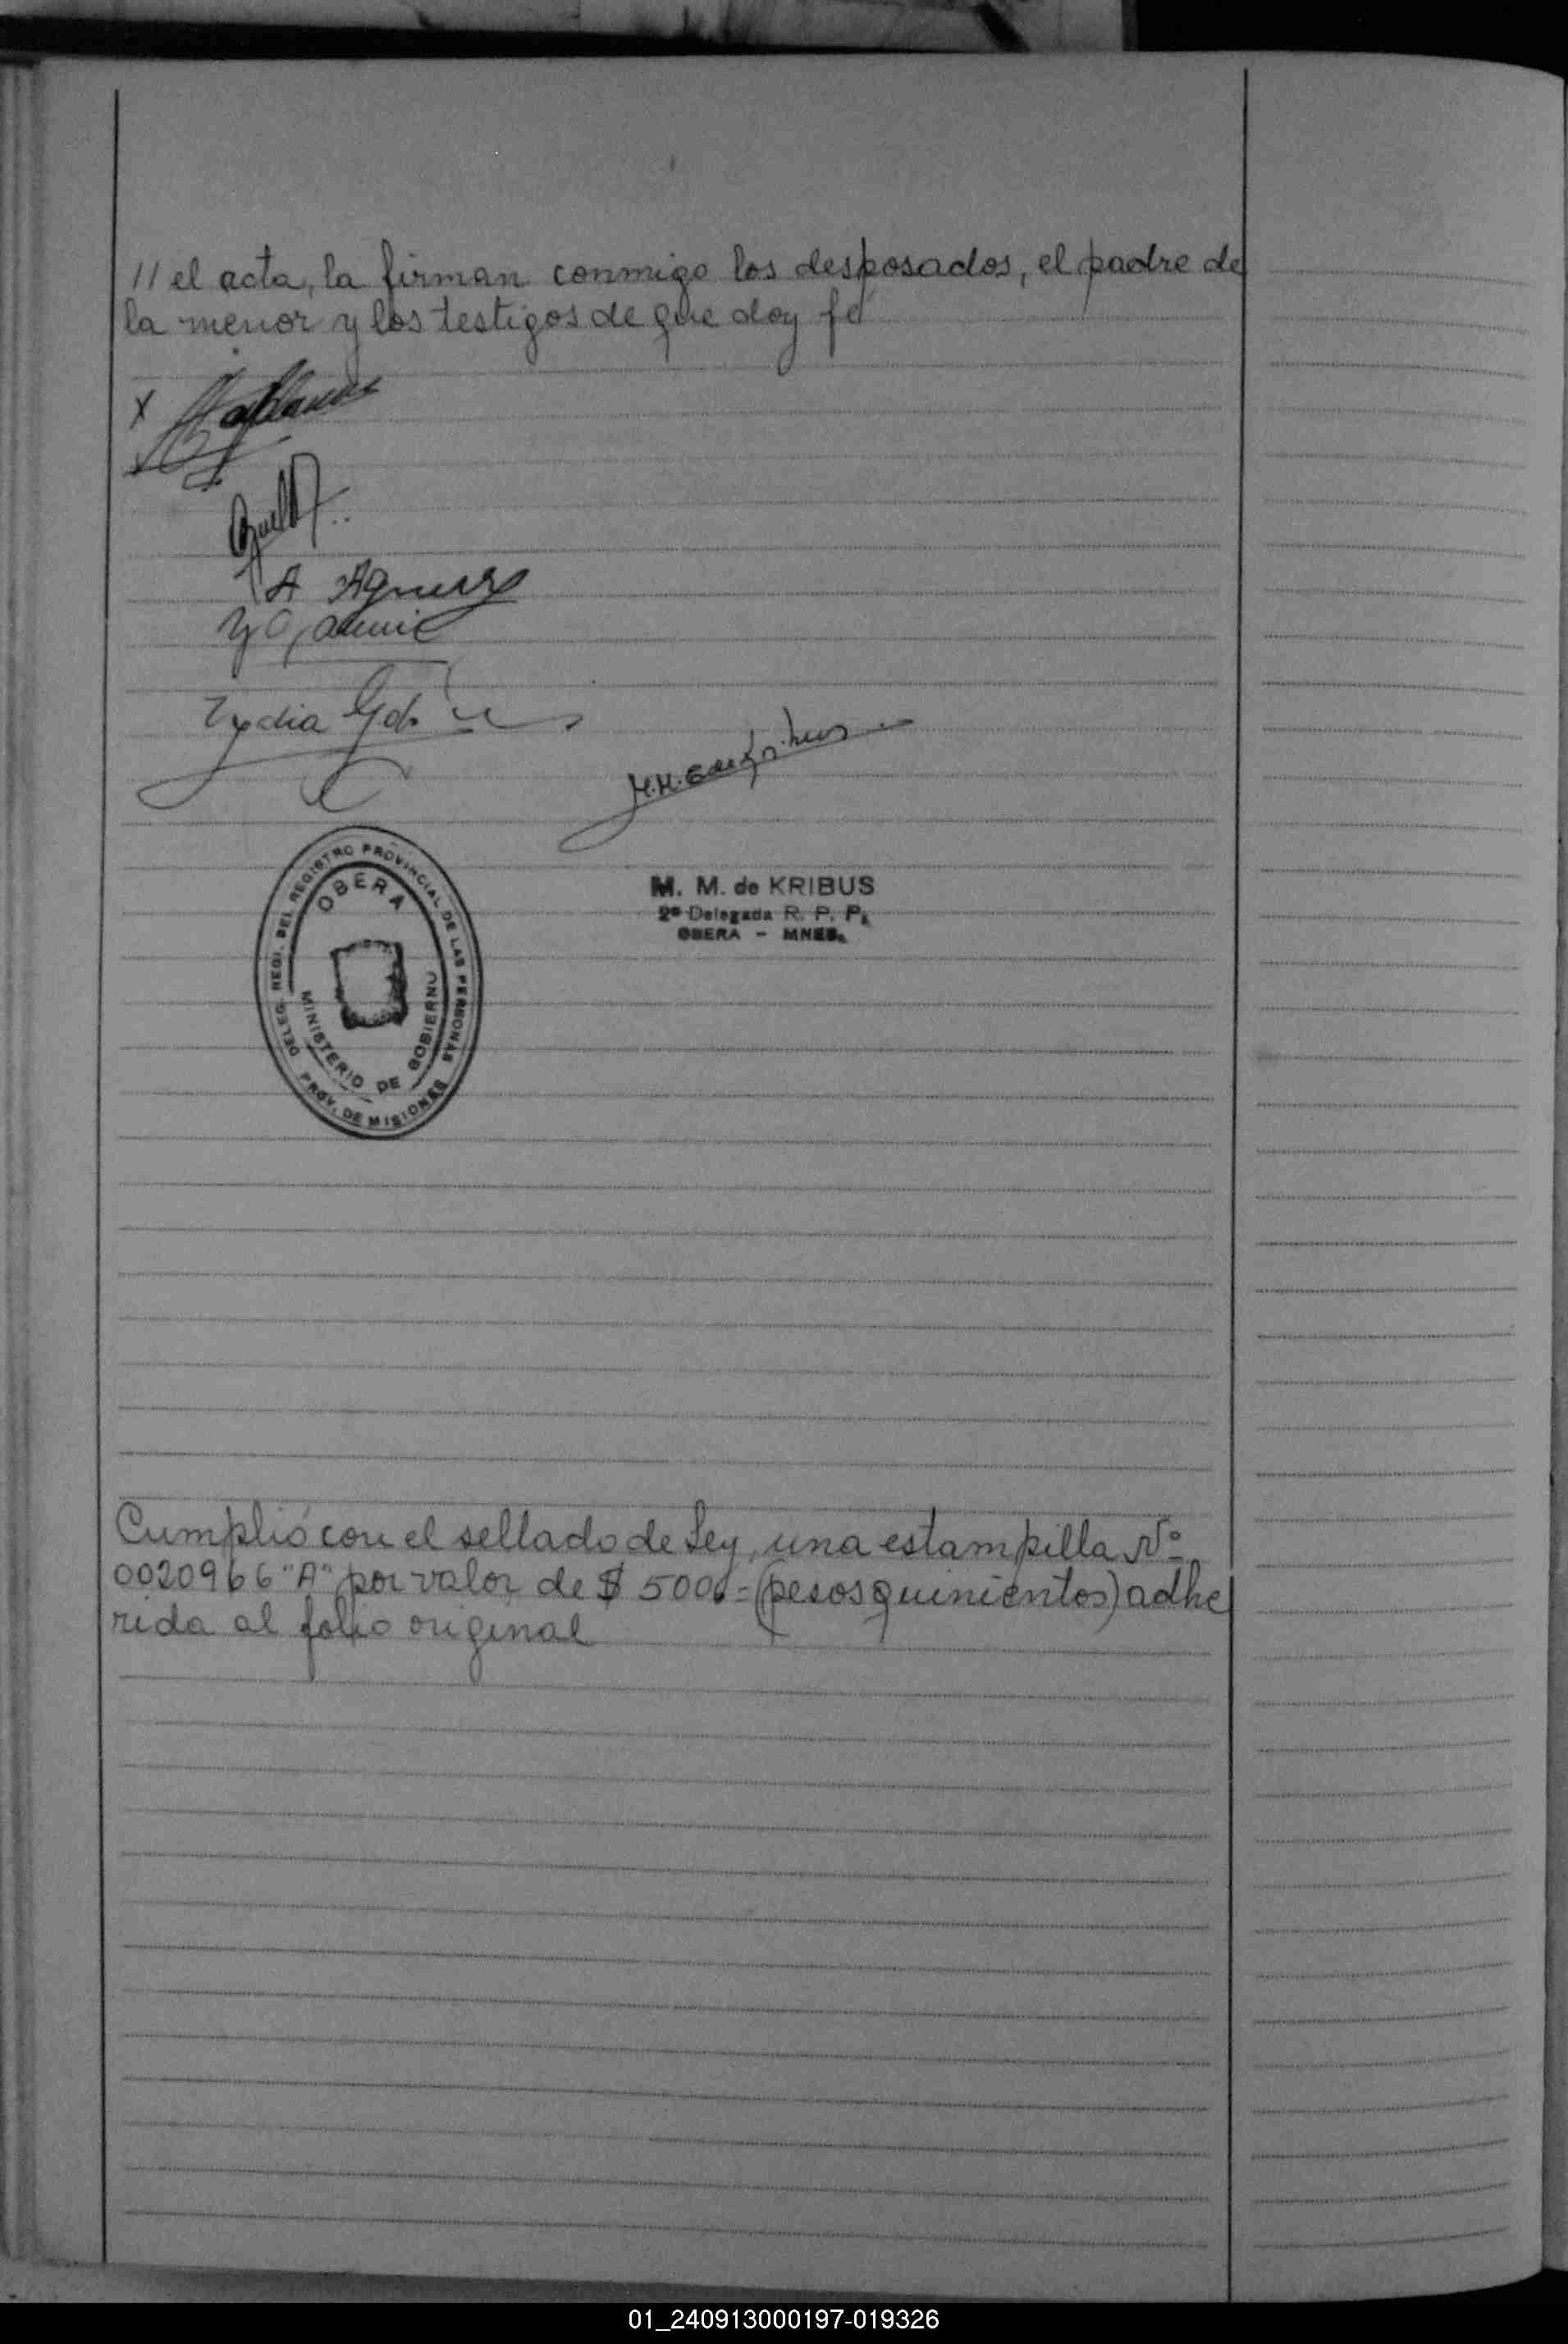 // el acta, la firman conmigo los desposados, el padre de
la menor y los testigos de que doy fé
x
A
Lydia
M. M. de KRIBUS
2ª Delegada R. P. P.
OBERA - MNES.
DELEG. REGI. DEL REGISTRO PROVINCIAL DE LAS PERSONAS
OBERA
MINISTERIO DE GOBIERNO
PROV. DE MISIONES
Cumplió con el sellado de Ley, una estampilla Nº
0020966 "A" por valor de $ 500,= (pesos quinientos) adhe
rida al folio original
01_240913000197-019326